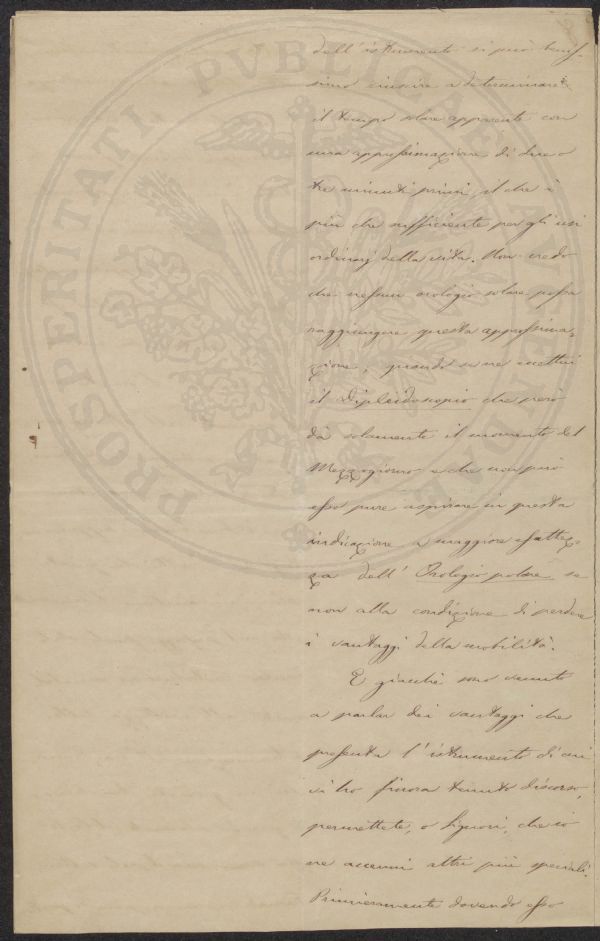 dell' istrumento si può benis-
simo riuscire a determinare
il tempo solare apparente con
una approssimazione di due o
tre minuti primi, il che è
più che sufficiente per gli usi
ordinarj della vita. Non credo
che nessun orologio solare possa
raggiungere questa approssima-
zione, quando se ne eccettui
il Dipleidoscopio che però
dà solamente il momento del
Mezzogiorno e che non può
esso pure aspirare in questa
indicazione a maggiore esattez-
za dell' Orologio polare se
non alla condizione di perdere
i vantaggi della mobilità.
E giacchè sono venuto
a parlar dei vantaggi che
presenta l' istrumento di cui
vi ho finora tenuto discorso,
permettete, o Signori, che io
ne accenni altri più speciali.
Primieramente dovendo esso
PROSPERITATI PVBLICAE